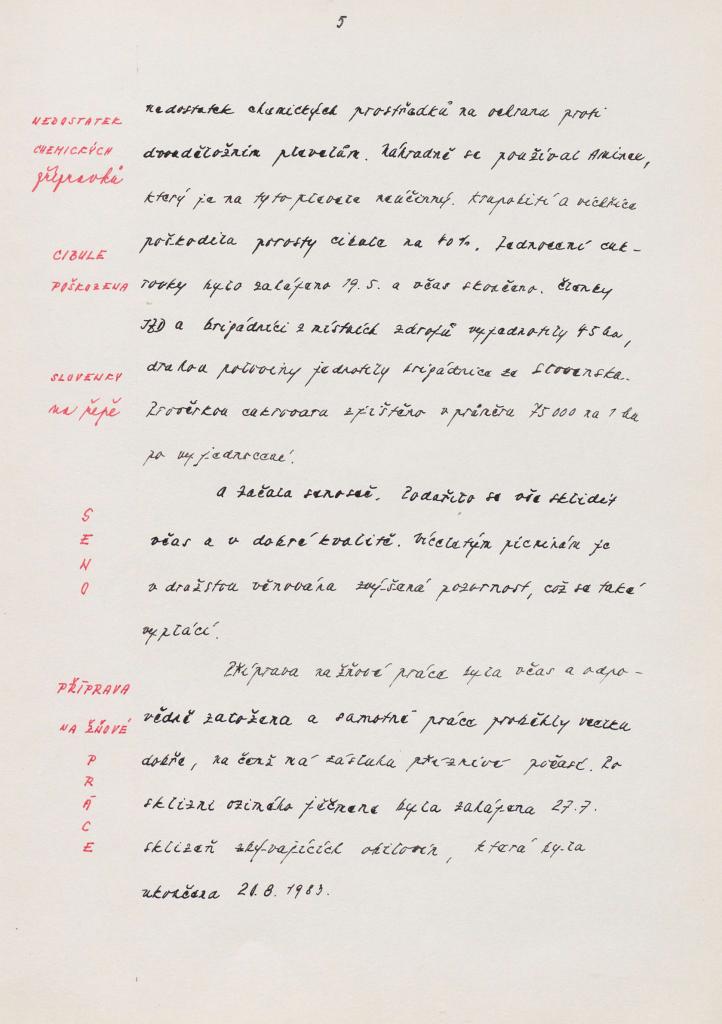 5
NEDOSTATEK
CHEMICKÝCH
přípravků
nedostatek chemických prostředků na ochranu proti
dvouděložním plevelům. Náhradně se používal Aminex,
který je na tyto plevele neúčinný. Krupobití a vichřice
CIBULE
POŠKOZENA
poškodila porosty cibule na 40%. Jednocení cuk-
rovky bylo zahájeno 19.5. a včas skončeno. Členky
JZD a brigádníci z místních zdrojů vyjednotily 45 ha,
SLOVENKY
na řepě
druhou poloviny jednotily brigádnice ze Slovenska.
Prověrkou cukrovaru zjištěno v průměru 75 000 na 1 ha
po vyjednocení.
S
E
N
O
A začala senoseč. Podařilo se vše sklidit
včas a v dobré kvalitě. Víceletým pícninám je
v družstvu věnována zvýšená pozornost, což se také
vyplácí.
PŘÍPRAVA
NA ŽŇOVÉ
P
R
Á
C
E
Příprava na žňové práce byla včas a odpo-
vědně založena a samotné práce proběhly vcelku
dobře, na čemž má zásluhu příznivé počasí. Po
sklizni ozimého ječmene byla zahájena 27.7.
sklizeň zbývajících obilovin, která byla
ukončena 20.8.1983.